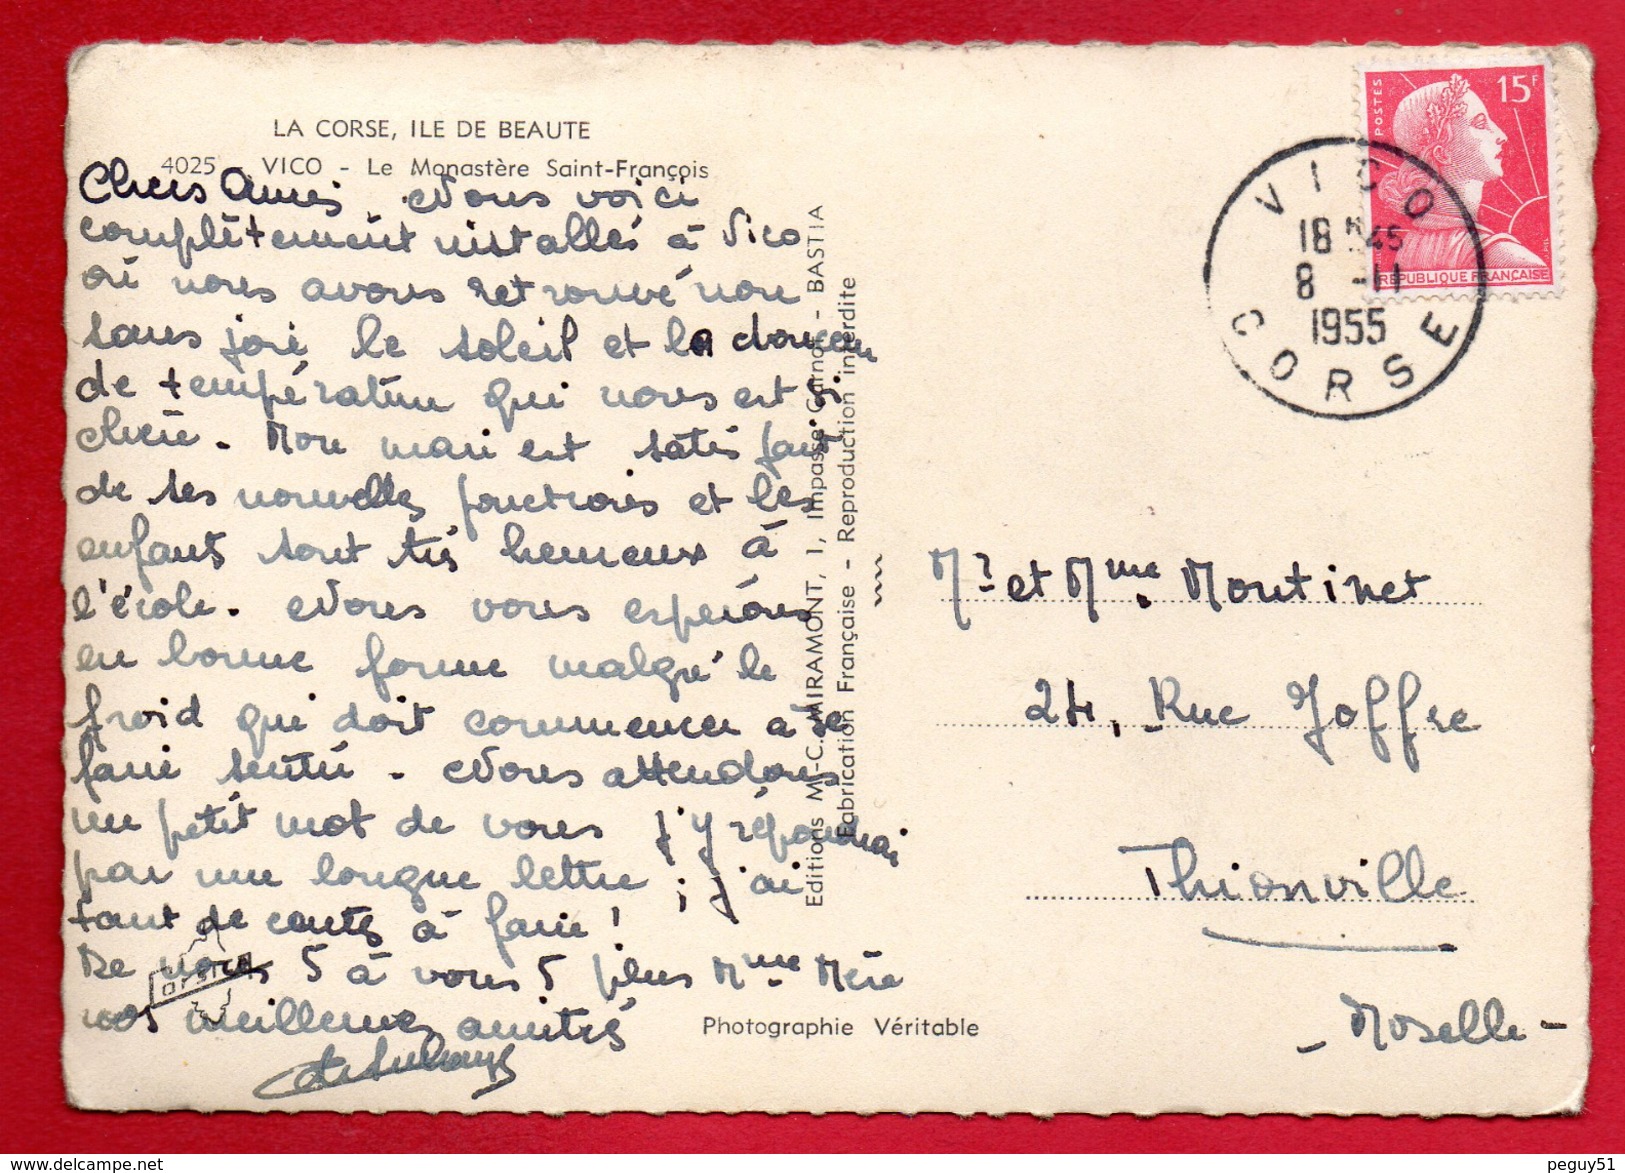 LA CORSE, ILE DE BEAUTE
4025 . VICO - Le Monastère Saint-François
Chers Amis Nous voici
complètement installés à Vico
où nous avons retrouvé non
sans joie le soleil et la douceur
de température qui nous est si
chère. Mon mari est satisfait
de ses nouvelles fonctions et les
enfants sont très heureux à
l'école. Nous vous espérons
en bonne forme malgré le
froid qui doit commencer à se
faire sentir. Nous attendons
un petit mot de vous j'y répondrai
par une longue lettre ; j'ai
tant de à faire !
De nous 5 à vous 5 plus Mme Mère
nos meilleures amitiés
Editions M.-C. MIRAMONT, 1, Impasse Carnot - BASTIA
Fabrication Française - Reproduction interdite
Photographie Véritable
15F
POSTES
REPUBLIQUE FRANÇAISE
VICO
18 H 45
8 -11
1955
CORSE
Mr et Mme Moutinet
24, Rue Joffre
Thionville
- Moselle -
peguy51